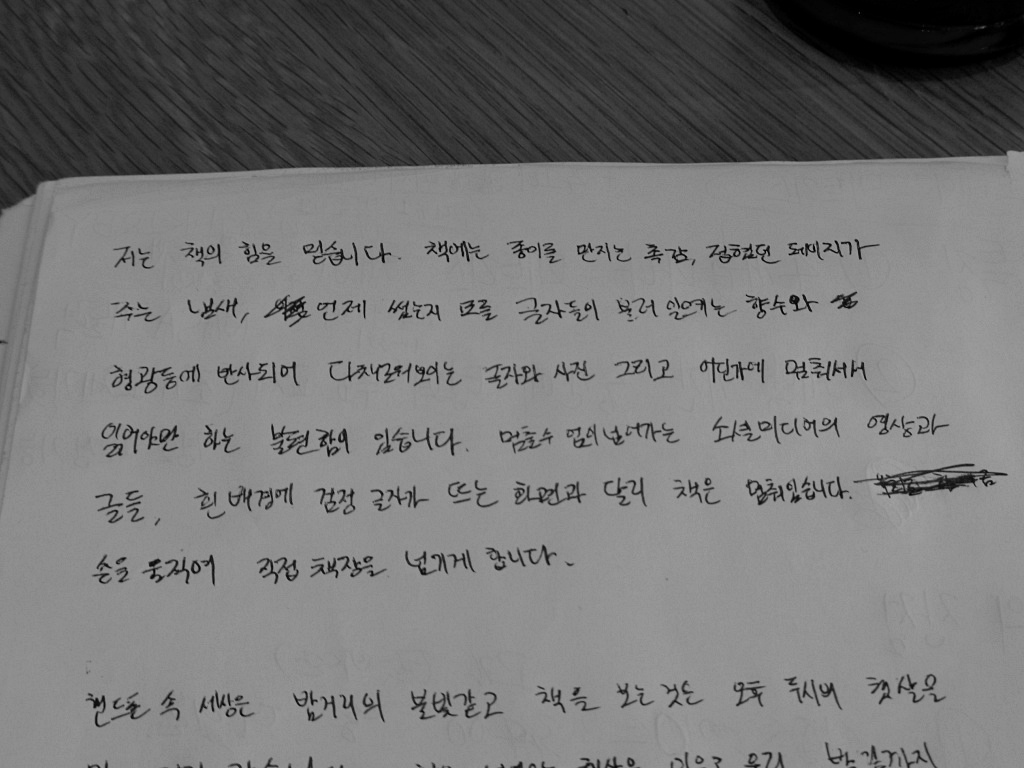 저는 책의 힘을 믿습니다. 책에는 종이를 만지는 촉감, 접혔던 페이지가
주는 냄새, 언제 썼는지 모를 글자들이 불러 일으키는 향수와
형광등에 반사되어 다채로워 보이는 글자와 사진 그리고 어딘가에 멈춰서서
읽어야만 하는 불편함이 있습니다. 멈출수 없이 넘어가는 소셜미디어의 영상과
글들, 흰 배경에 검정 글자가 뜨는 화면과 달리 책은 멈춰있습니다.
손을 움직여 직접 책장을 넘기게 합니다.
핸드폰 속 세상은 밤거리의 불빛같고 책을 보는 것은 오후 두시의 햇살을